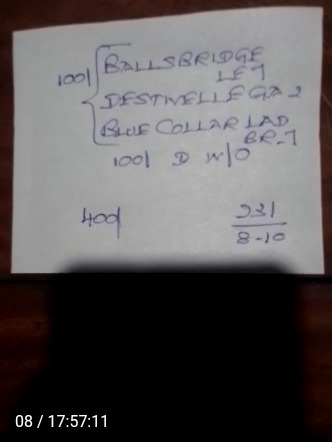 100/ BALLSBRIDGE
LE 7
DESTINELLE GA 2
BLUE COLLAR LAD
BR-7
100/ D W/O
400/
231
8-10
08 / 17:57:11